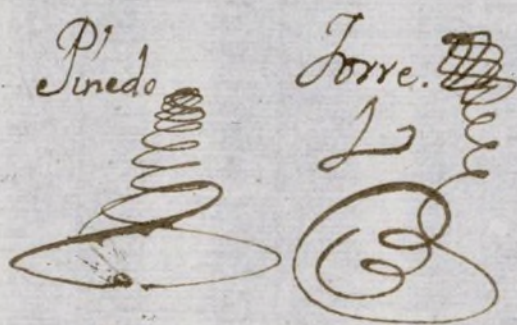 Pinedo
Torre.